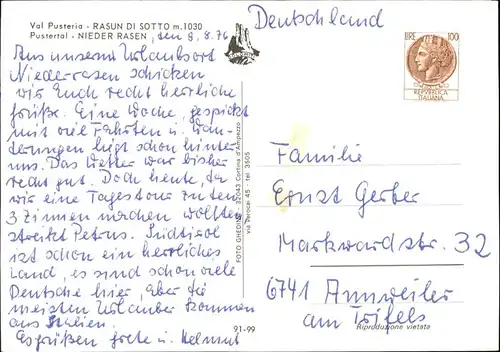 Val Pusteria - RASUN DI SOTTO m. 1030
Pustertal - NIEDER RASEN, den 8.8.76
Aus unserm Urlaubsort
Niederrasen schicken
wir Euch recht herrliche
Grüße. Eine Woche, gespickt
mit viel Fahrten u. Wan-
derungen liegt schon hinter
uns. Das Wetter war bisher
recht gut. Doch heute, da
wir eine Tagestour zu den
3 Zinnen machen wollten
streikt Petrus. Südtirol
ist schon ein herrliches
Land, es sind schon viele
Deutsche hier, aber die
meisten Urlauber kommen
aus Italien.
Es grüßen Grete u. Helmut
FOTO GHEDINA - 32043 Cortina d'Ampezzo
via Pezocai 45 - tel. 3505
91-99
Deutschland
LIRE 100
REPVBBLICA
ITALIANA
Familie
Ernst Gerber
Markwardstr. 32
6741 Annweiler
am Trifels
Riproduzione vietata